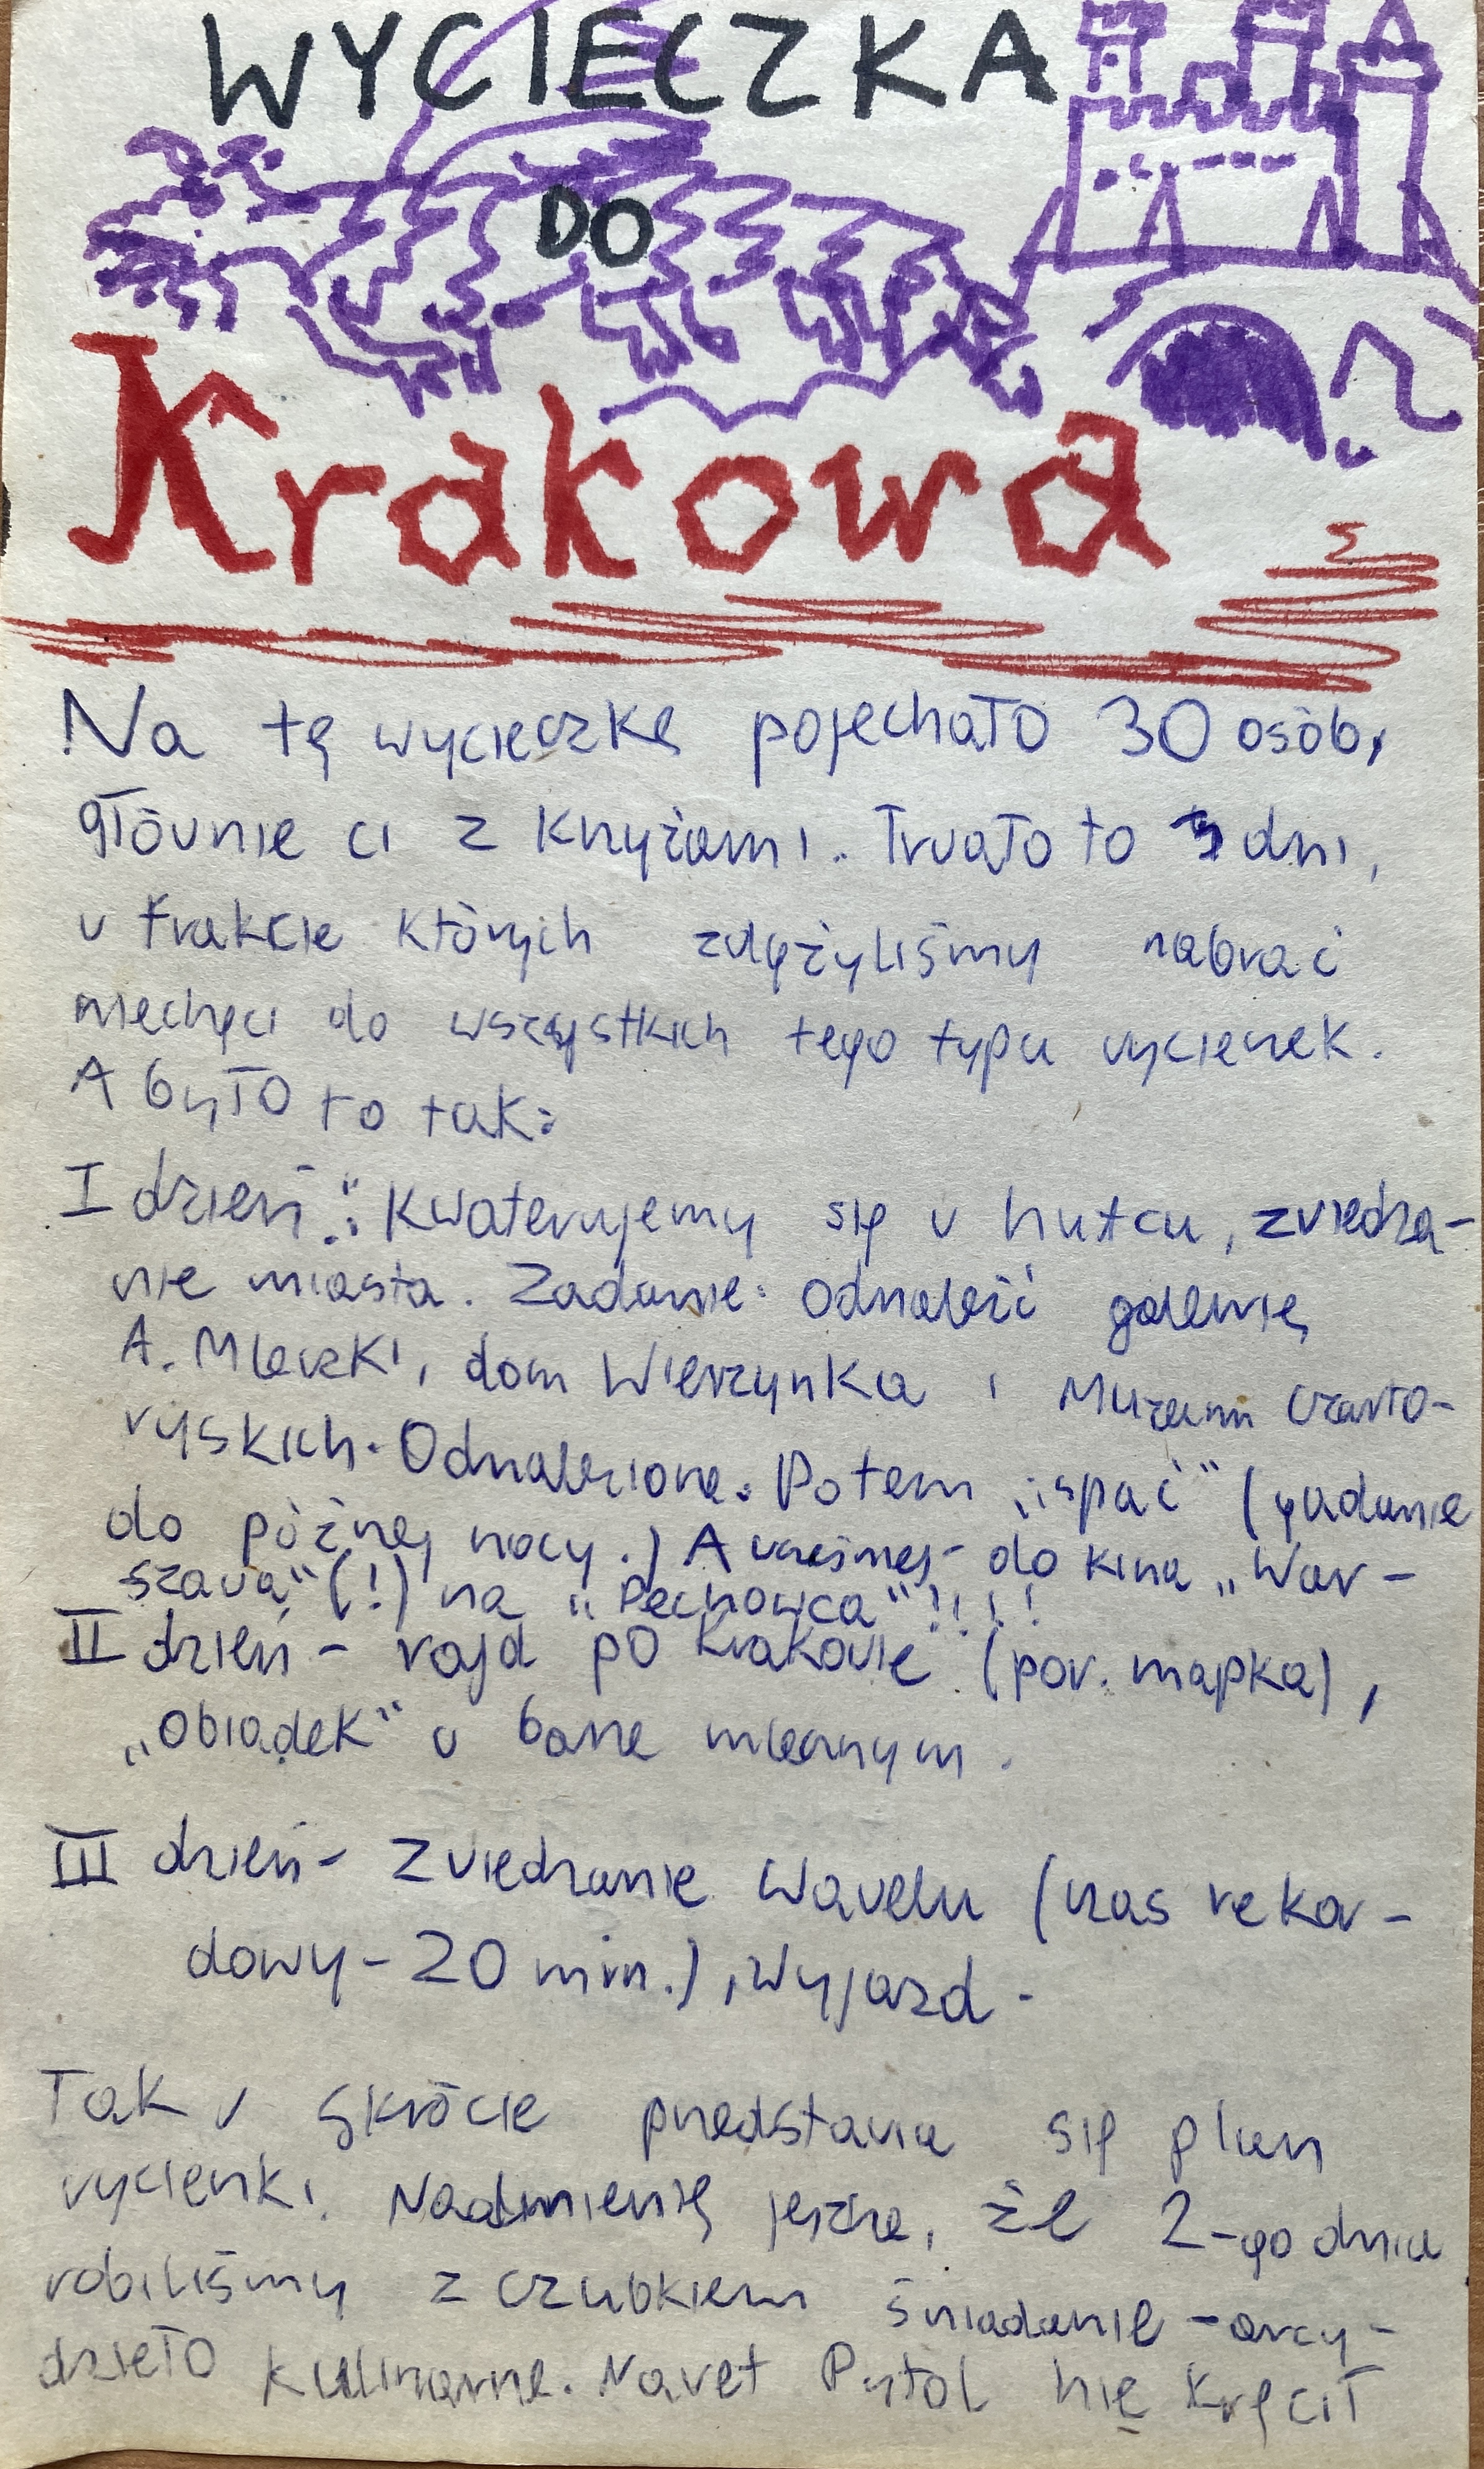 WYCIECZKA
DO
Krakowa
Na tę wycieczkę pojechało 30 osób,
głównie ci z Knyżami. Trwało to 3 dni,
w trakcie których zdążyliśmy nabrać
niechęci do wszystkich tego typu wycieczek.
A było to tak:
I dzień: Kwaterujemy się w hufcu, zwiedza-
nie miasta. Zadanie: odnaleźć galerię
A. Mleczki, dom Wierzynka i Muzeum Czarto-
ryskich. Odnalezione. Potem „ispać" (gadanie
do późnej nocy.) A wcześniej - do kina „War-
szawa" (!) na „Pechowca"!!!!
II dzień - rajd po Krakowie (por. mapka),
„Obiadek" w barze mlecznym.
III dzień - Zwiedzanie Wawelu (czas rekor-
dowy - 20 min.), wyjazd.
Tak w skrócie przedstawia się plan
wycieczki. Nadmienię jeszcze, że 2-go dnia
robiliśmy z czubkiem śniadanie - arcy-
dzieło kulinarne. Nawet Pytol nie kręcił